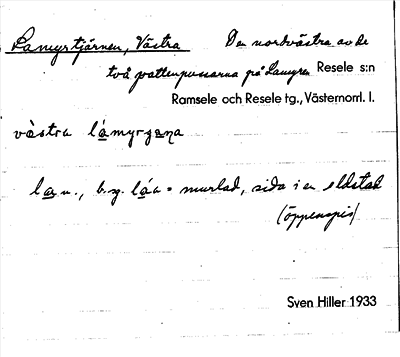 Lamyrtjärnen, Västra Den nordvästra av de
två vattenpussarna på Lamyren Resele s:n
Ramsele och Resele tg., Västernorrl. l.
västra lámyrgɐna
la n., b.sg. láa = murlad, sida i en eldstad
(öppenspis)
Sven Hiller 1933